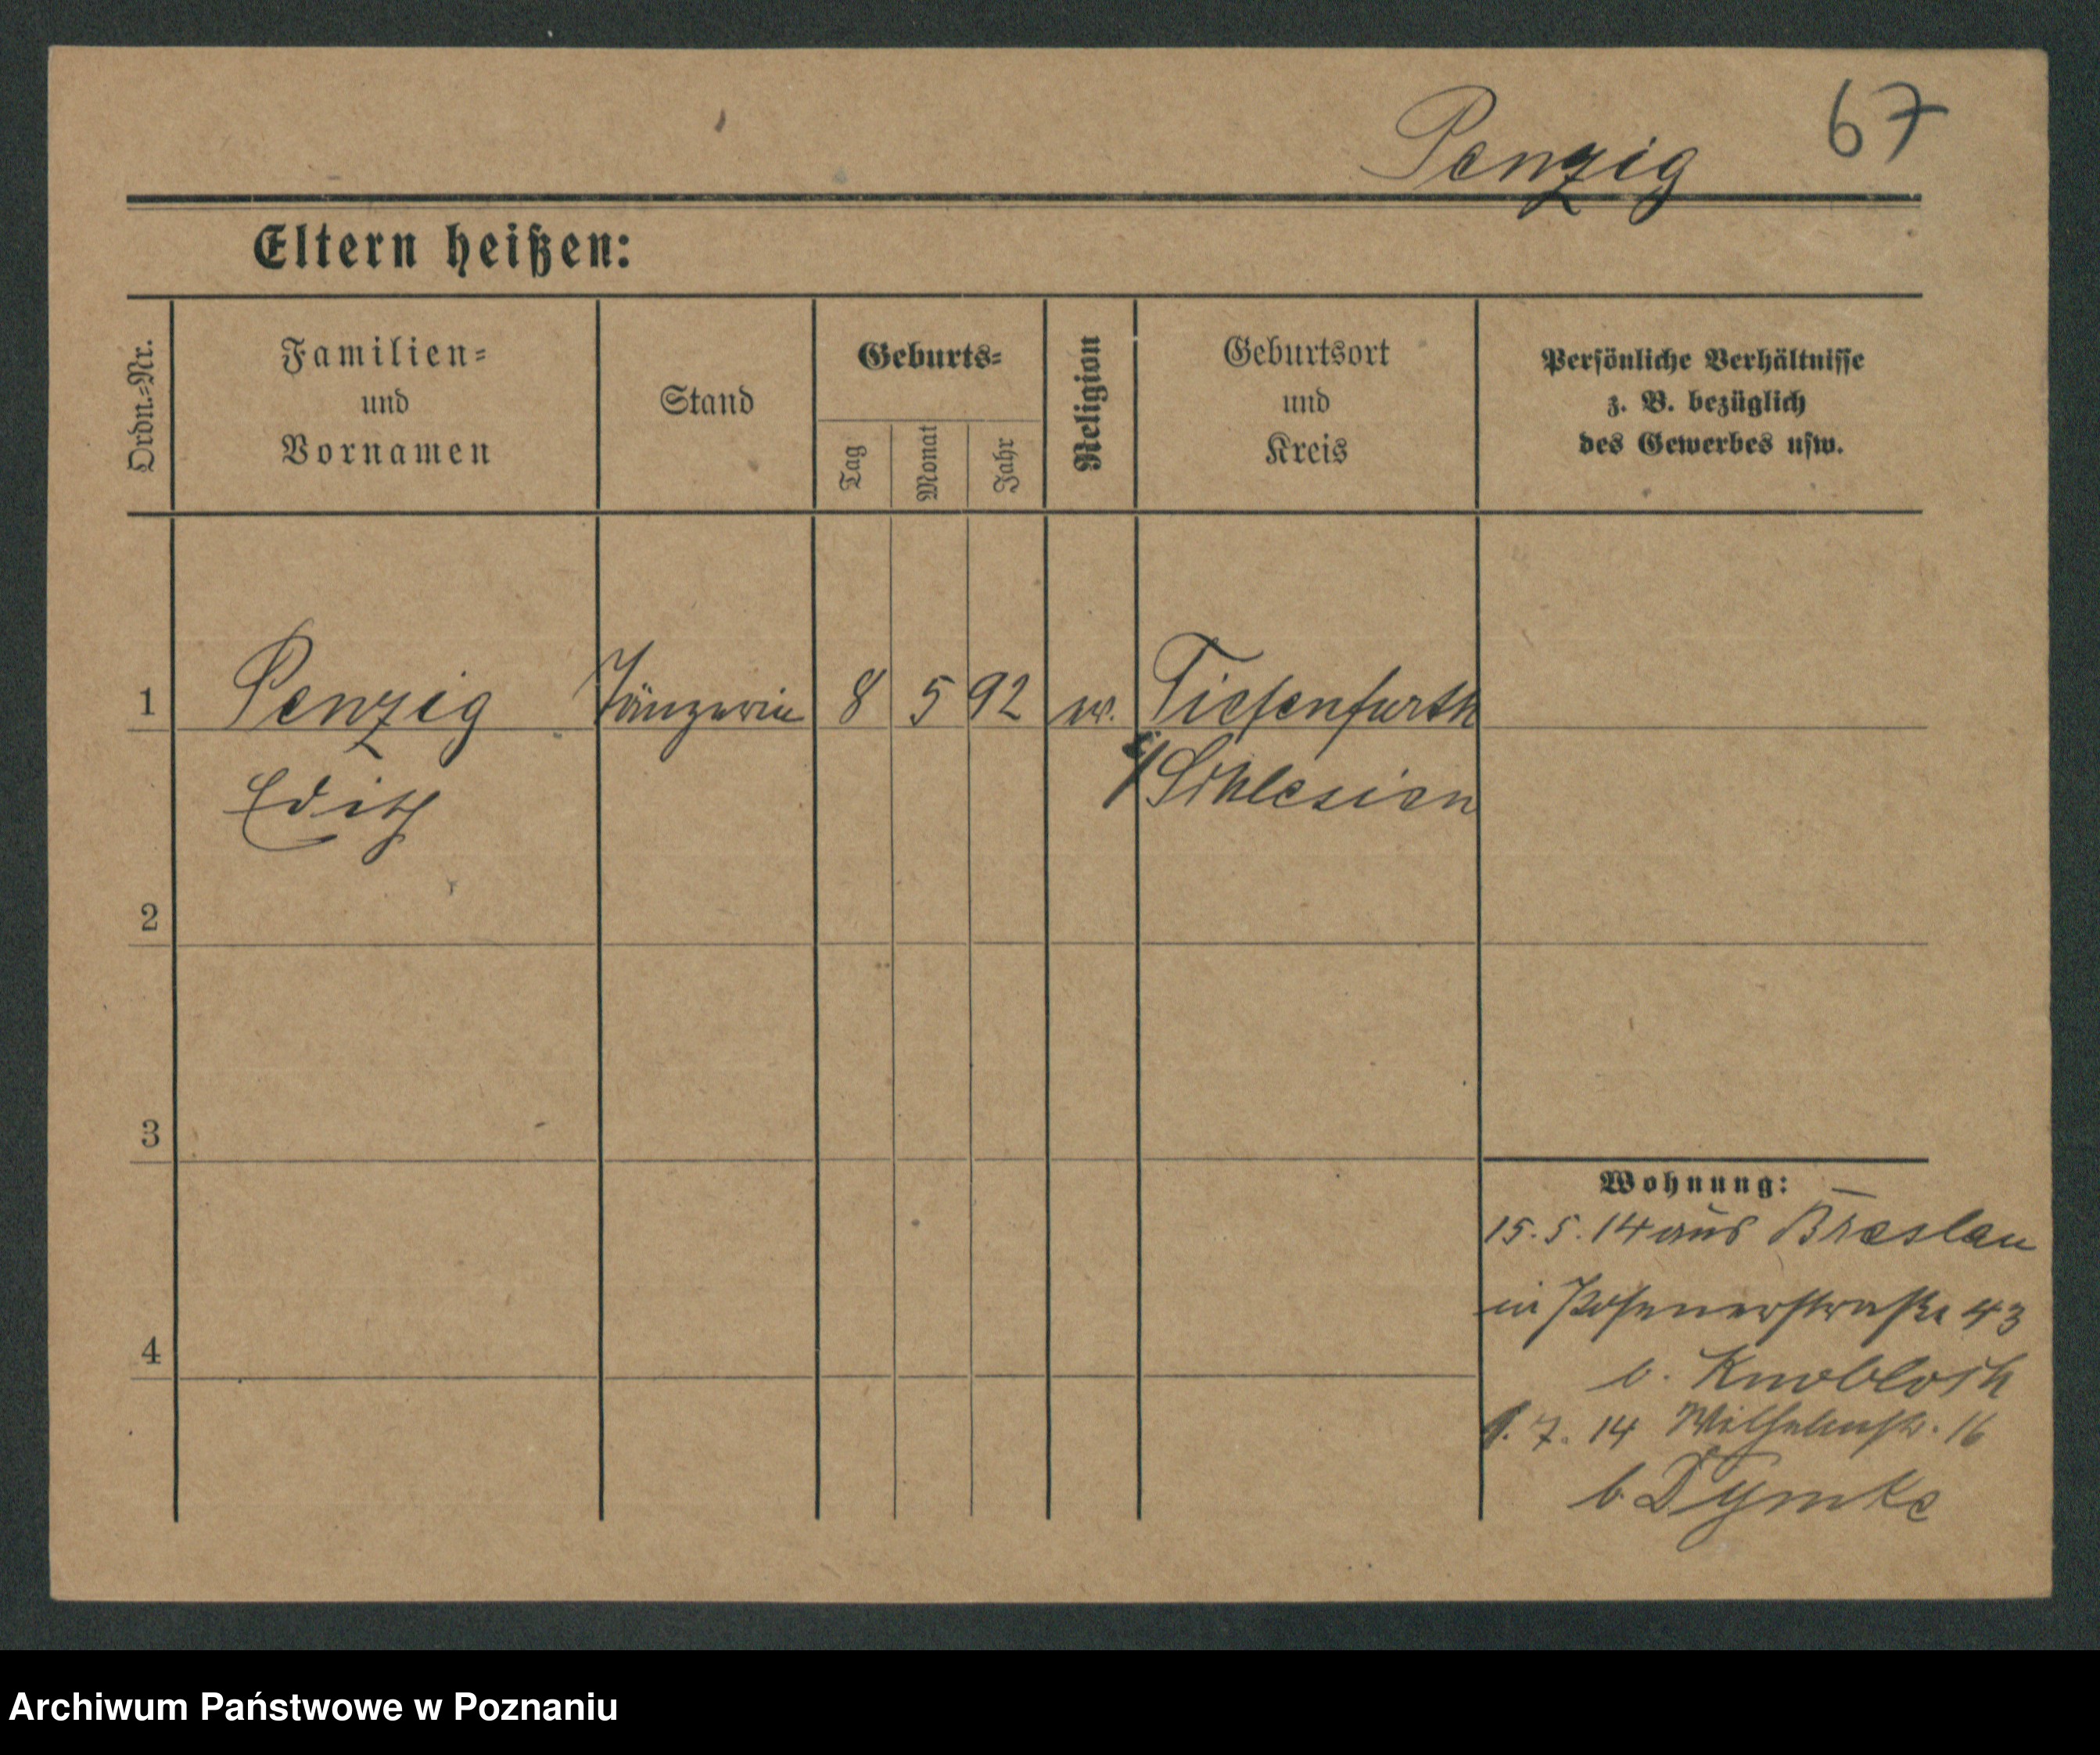 Penzig 67
Eltern heißen:
Ordn.-Nr.
Familien-
und
Vornamen
Stand
Geburts-
Tag
Monat
Jahr
Religion
Geburtsort
und
Kreis
Persönliche Verhältnisse
z. B. bezüglich
des Gewerbes usw.
1 Penzig Tänzerin 8 5 92 Tiefenfurth
Edith Schlesien
2
3
4
Wohnung:
15.5.14 aus Breslau
in Posenerstraße 43
b. Knobloch
7. 14 Wilhelmstr. 16
b. Dymke
Archiwum Państwowe w Poznaniu